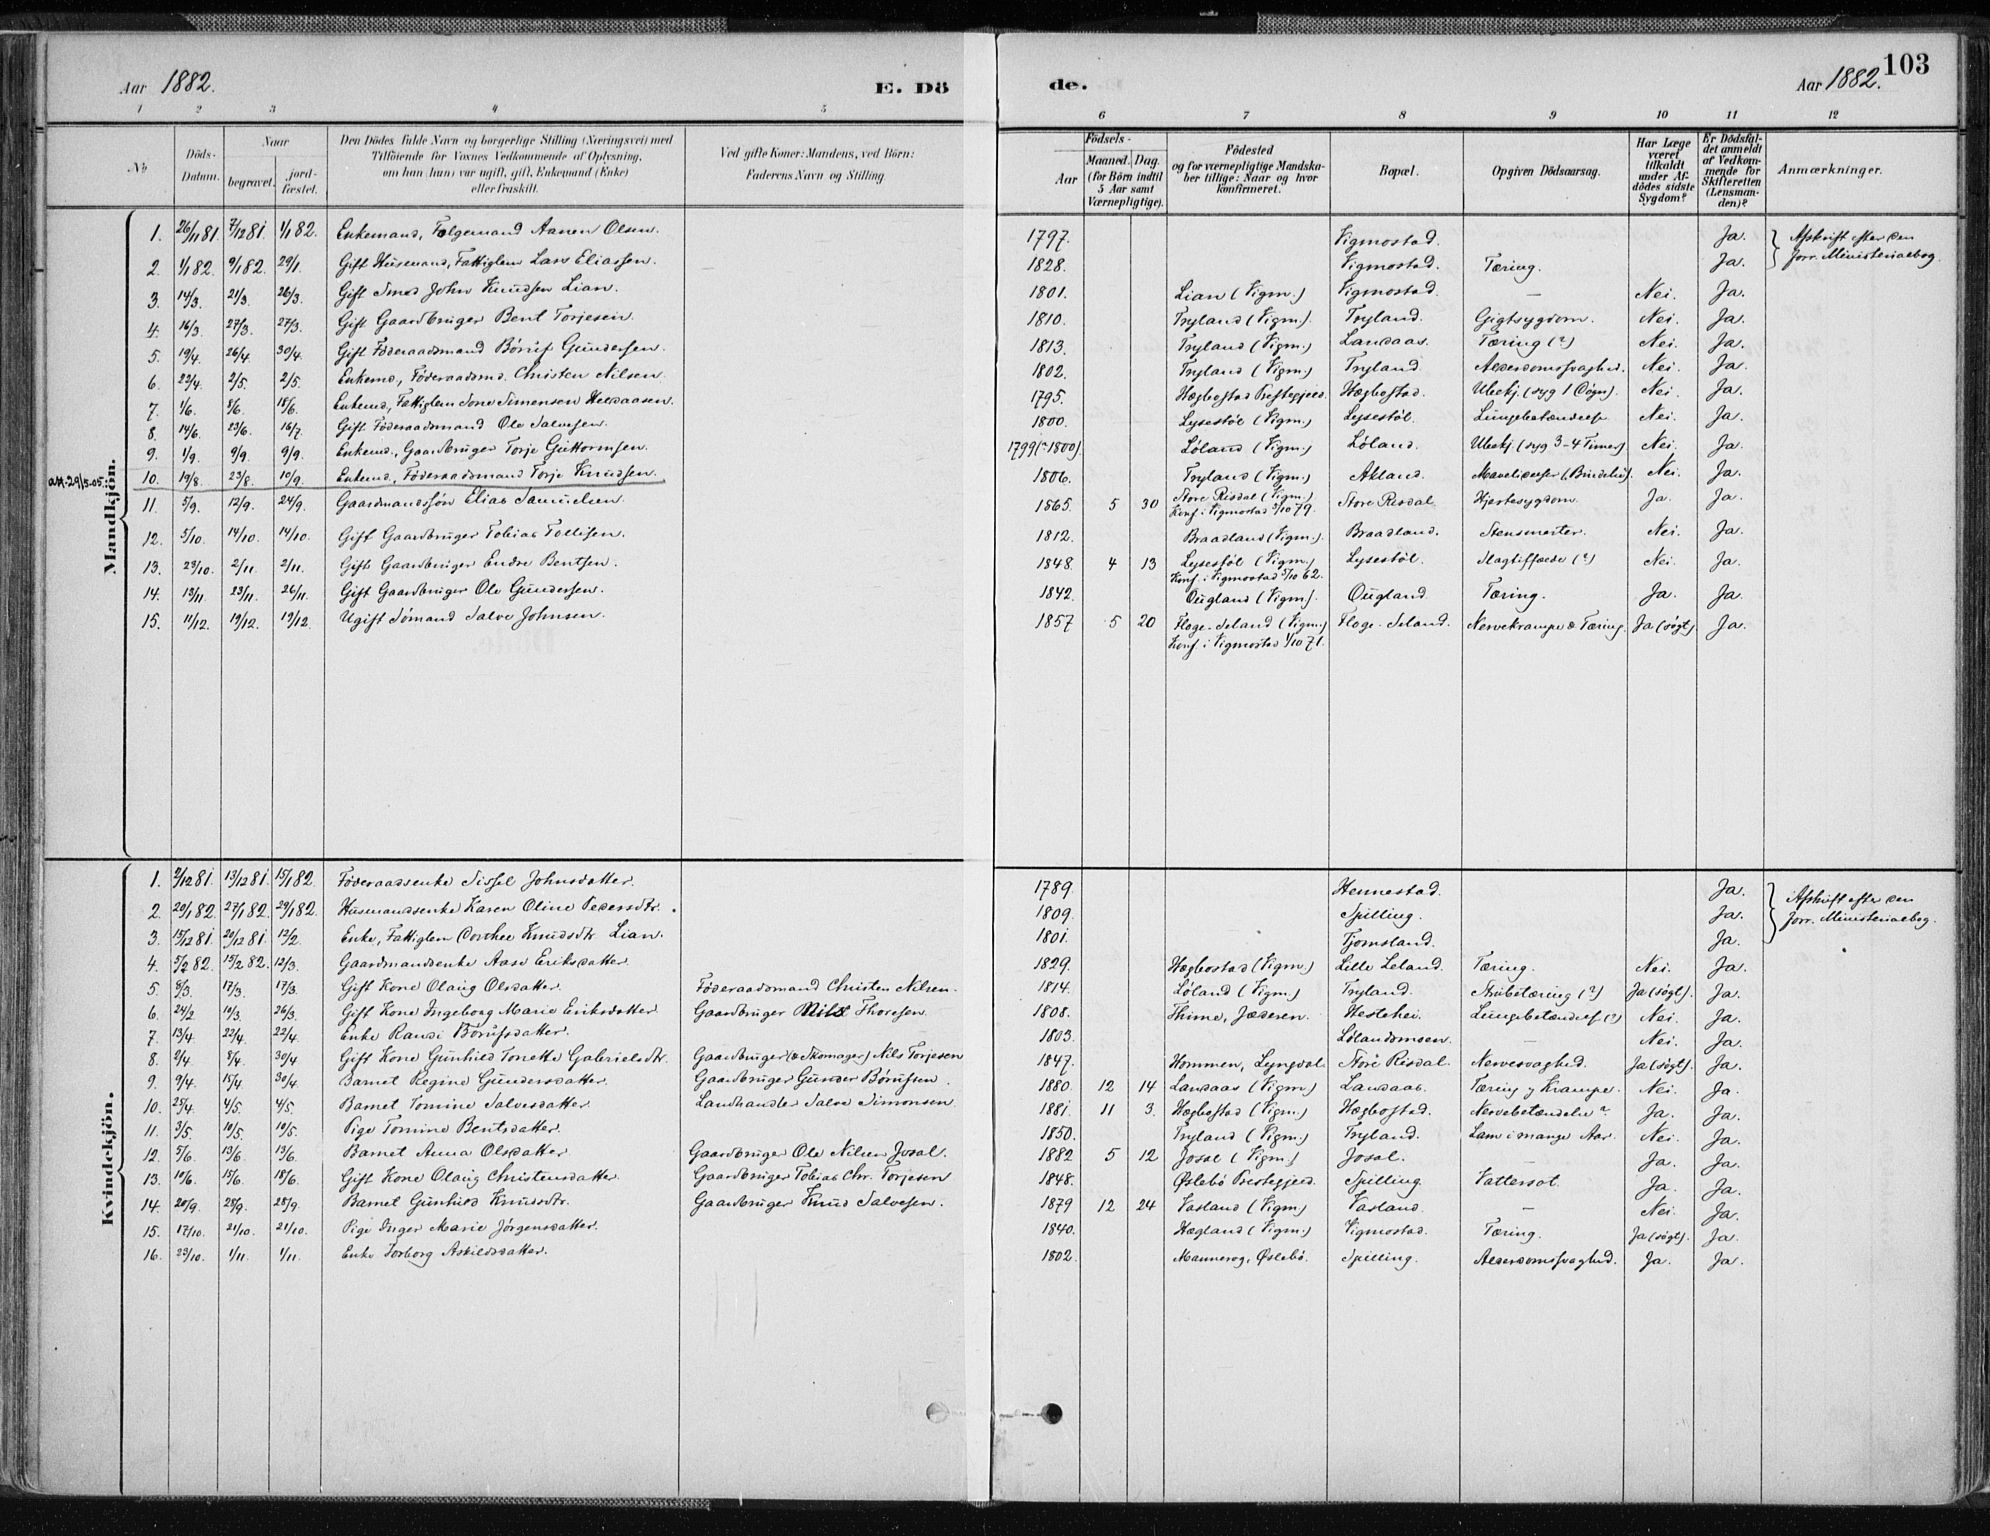 103
Aar 1882. E. Dö de. Aar 1882.
1 2 3 4 5 6 7 8 9 10 11 12
No
Döds-Datum.
Naar
begravet.
jord-fæstet.
Den Dödes fulde Navn og borgerlige Stilling (Næringsvei) med
Tilföiende for Voxnes Vedkommende af Oplysning,
om han (hun) var ugift, gift, Enkemand (Enke)
eller fraskilt.
Ved gifte Koner: Mandens, ved Börn:
Faderens Navn og Stilling.
Födsels-
Aar
Maaned. Dag.
(for Börn indtil
5 Aar samt
Værnepligtige).
Födested
og for værnepligtige Mandska-
ber tillige: Naar og hvor
konfirmeret.
Bopæl.
Opgiven Dödsaarsag.
Har Læge
været
tilkaldt
under Af-
dödes sidste
Sygdom?
Er Dödsfal-
det anmeldt
af Vedkom-
mende for
Skifteretten
(Lensman-
den)?
Anmærkninger.
Mandkjön.
1. 26/11 81. 7/12 81. 1/1 82. Enkemand, Følgemand Aanen Olsen. 1797. Vigmostad. Ja. Afskrift efter den
2. 1/1 82. 9/1 82. 29/1. Gift Husmand, Fattiglem Lars Eliassen. 1828. Vigmostad. Tæring. Ja. forr. Ministerialbog.
3. 14/3. 21/3. 26/3. Gift Smed John Knudsen Lian. 1801. Lian (Vigm.) Vigmostad. — Nei. Ja.
4. 16/3. 27/3. 27/3. Gift Gaardbruger Bent Torjesen. 1810. Tryland (Vigm.). Tryland. Gigtsygdom. Nei. Ja.
5. 19/4. 26/4. 30/4. Gift Föderaadsmand Börüf Gundersen. 1813. Tryland (Vigm.) Landaas. Tæring (?) Nei. Ja.
6. 23/4. 2/5. 2/5. Enkemd., Föderaadsmd. Christen Nilsen. 1802. Tryland (Vigm.) Tryland Alderdomssvaghed. Nei. Ja.
7. 1/6. 8/6. 18/6. Enkemd., Fattiglem Tore Simonsen 1795. Hægbostad Prestegjeld. Hægbostad. Ubekj. (syg 1 Døgn). Nei. Ja.
8. 14/6. 23/6. 16/7. Gift Föderaadsmand Ole Salvesen. 1800. Lysestøl (Vigm.) Lysestøl. Lungebetændelse Nei. Ja.
9. 1/9. 9/9. 9/9. Enkemd., Gaardbruger Torje Guttormsen. 1799 (-1800). Løland (Vigm.) Løland. Ubekj. (syg 3-4 Timer) Nei. Ja.
am. 29/5-05. 10. 19/8. 23/8. 10/9. Enkemd., Föderaadsmand Torje Knudsen. 1806. Tryland (Vigm.) Akland. Nei. Ja.
11. 5/9. 12/9. 24/9. Gaardmandssøn Elias Samuelsen. 1865. 5 30 Store Risdal (Vigm.) Store Risdal. Hjertesygdom. Ja. Ja.
Konf. i Vigmostad 5/10 79.
12. 5/10. 14/10. 14/10. Gift Gaardbruger Tobias Tollefsen. 1812. Braadland (Vigm.). Braadland. Stensmerter. Nei. Ja.
13. 23/10. 2/11. 2/11. Gift Gaardbruger Endre Bentsen. 1848. 4 13 Lysestøl (Vigm.) Lysestøl. Slagtilfælde (?) Nei. Ja.
Konf. i Vigmostad 5/10 62.
14. 13/11. 23/11. 26/11. Gift Gaardbruger Ole Gundersen. 1842. Ougland (Vigm.). Ougland Tæring. Ja. Ja.
15. 11/12. 19/12. 19/12. Ugift Sømand Salve Johnsen. 1857 5 20 Floge-Seland (Vigm.) Floge-Seland. Nervekrampe & Tæring. Ja (søgt). Ja.
Konf. i Vigmostad 1/10 71.
Kvindekjön.
1. 2/12 81. 13/12 81. 15/1 82. Föderaadsenke Sissel Johnsdatter. 1789. Hennestad. Ja. Afskrift efter den
2. 20/1 82. 27/1 82. 29/1 82. Husmandsenke Karen Oline Pedersdtr. 1809. Spilling. Ja. forr. Ministerialbog.
3. 15/12 81. 20/12 81. 12/2. Enke, Fattiglem Dorthee Knudsdtr. Lian. 1801. Tjomsland. Ja.
4. 5/2 82. 15/2 82. 12/3. Gaardmandsenke Aase Eriksdatter. 1829. Hægbostad (Vigm.) Lille Leland. Tæring. Nei. Ja.
5. 8/3. 17/3. 17/3. Gift Kone Olaüg Olsdatter. Föderaadsmand Christen Nilsen. 1814. Løland (Vigm.) Tryland. Strubetæring (?) Ja (søgt). Ja.
6. 24/2. 14/3. 26/3. Gift Kone Ingeborg Marie Eriksdatter. Gaardbruger Nils Thoresen. 1808. Thime, Jæderen. Hestehei. Lungebetændelse (?) Nei. Ja.
7. 13/4. 22/4. 22/4. Enke Randi Börufsdatter. 1803. Lølandsmoen. — Nei. Ja.
8. 2/4. 8/4. 30/4. Gift Kone Gunhild Tonette Gabrielsdtr. Gaardbruger (& Skomager) Nils Torjesen 1847. Hommen, Lyngdal. Store Risdal. Nervesvaghed. Ja (søgt). Ja.
9. 9/4. 15/4. 30/4. Barnet Regine Gundersdatter. Gaardbruger Gunder Børufsen. 1880. 12 14 Landaas (Vigm.) Landaas. Tæring og Krampe. Nei. Ja.
10. 25/4. 4/5. 4/5. Barnet Tomine Salvesdatter. Landhandler Salve Simonsen. 1881. 11 3. Hægbostad (Vigm.) Hægbostad. Nervebetændelse? Ja. Ja.
11. 3/5. 10/5. 10/5. Pige Tomine Bentsdatter. 1850. Tryland (Vigm.) Tryland. Lam i mange Aar. Nei. Ja.
12. 5/6. 13/6. 13/6. Barnet Anna Olsdatter. Gaardbruger Ole Nilsen Josal. 1882 5 12 Josal (Vigm.) Josal. — Ja. Ja.
13. 10/6. 15/6. 18/6. Gift Kone Olaüg Christensdatter. Gaardbruger Tobias Chr. Torjesen 1848. Øslebö Prestegjeld. Spilling. Vattersot. Ja. Ja.
14. 20/9. 28/9. 28/9. Barnet Gunhild Knudsdtr. Gaardbruger Knud Salvesen. 1879 12 24 Vasland (Vigm.) Vasland. — Nei. Ja.
15. 12/10. 21/10. 21/10. Pige Inger Marie Jörgensdatter. 1840. Hægland (Vigm.) Vigmostad. Tæring. Ja (søgt). Ja.
16. 23/10. 1/11. 1/11. Enke Torborg Askildsdatter. 1802. Øslebö. Spilling. Alderdomssvaghed. Ja. Ja.